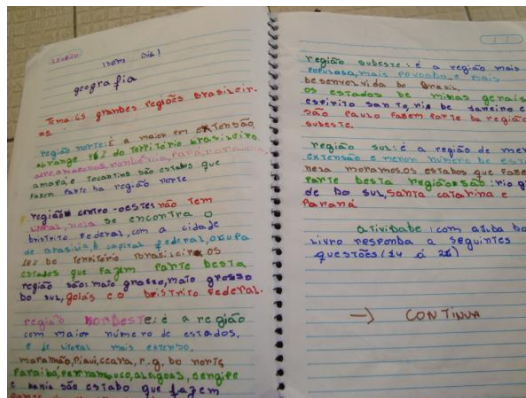 bom dia!
geografia
Tema: as grandes regiões brasileir-
as
região norte: é a maior em extensão,
abrange do território brasileiro
acre, amazonas, rondônia, Pará, roraima,
amapá e Tocantins são estabos que
fazem Parte ba região norte
região centro-oeste: não tem
litoral, nela se encontra o
bistrito Federal, com a cidade
de brasília, capital federal, ocupa
do Território brasileiro os
estabos que fazem Parte besta
região são: mato grosso, mato grosso
bo sul, goiás e o bistrito Federal.
região Nordeste: é a região
com maior número de estados,
e de litoral mais extenso,
maranhão, Piauí, ceara, r.g. bo norte,
Paraíba, Pernambuco, alagoas, sergipe
e bahia são estabo que fazem
região subeste: é a região mais
populosa, mais povoaba, e mais
besenvolvida bo brasil,
os estabos de minas gerais
espírito santo, rio de janeiro e
são Paulo fazem Parte ba região
subeste.
região sul: é a região de menor
extensão e menor número be
nela moramos, os estabos que fazem
Parte besta região são: rio g
de bo sul, santa catarina e
Paraná
atividabe: com ajuba bo
livro responba a seguintes
questões
→ CONTINUA